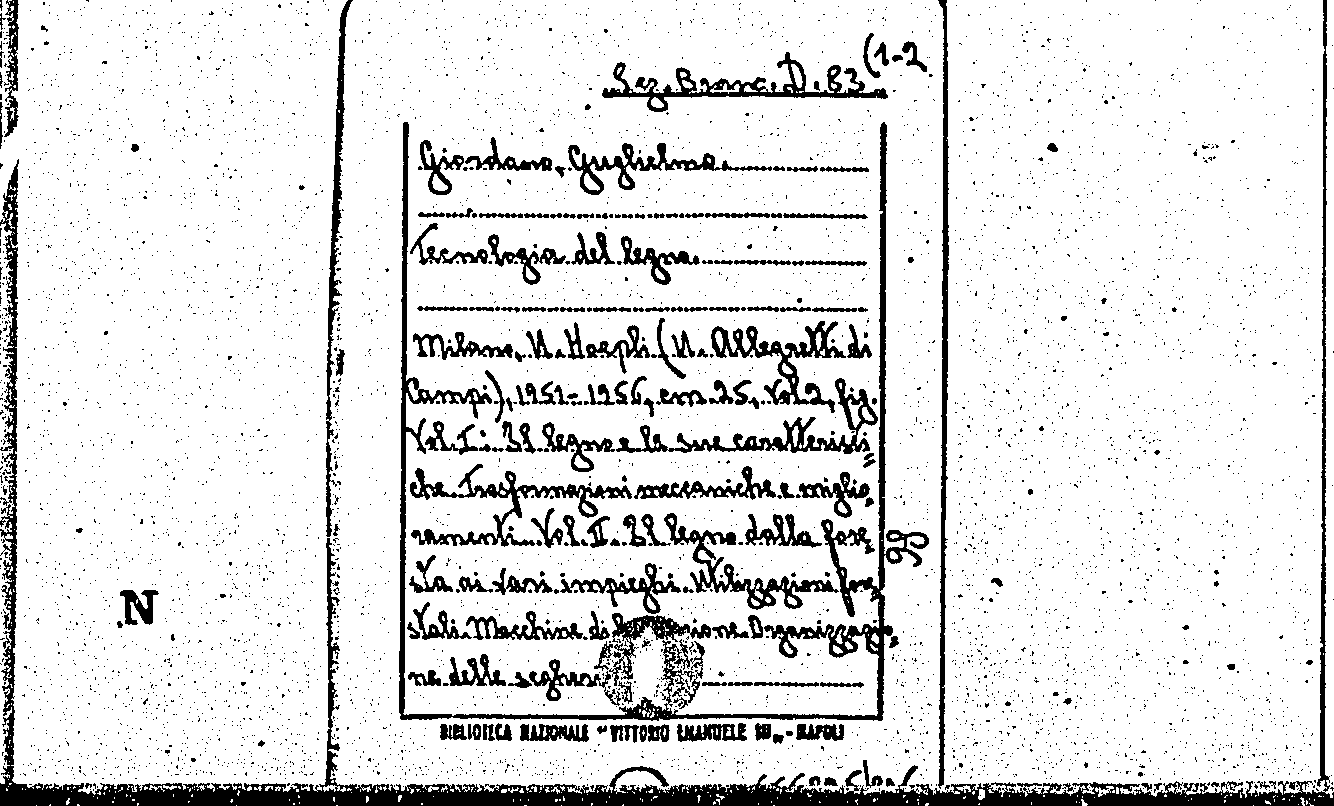 Sez. Branc. D. 83 (1-2
Giordano, Guglielmo.
Tecnologia del legno.
Milano, U. Hoepli (U. Allegretti di
Campi), 1951-1956, cm. 25, Vol. 2, fig.
Vol. I: Il legno e le sue caratteristi=
che. Trasformazioni meccaniche e miglio=
ramenti. Vol. II. Il legno dalla fore=
sta ai vari impieghi. Utilizzazioni fore=
stali. Macchine di Organizzazio=
ne delle
BIBLIOTECA NAZIONALE "VITTORIO EMANUELE III" - NAPOLI
N